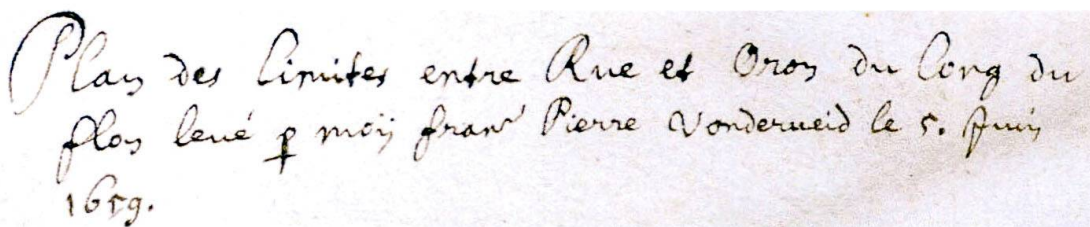 Plan des limites entre Rue et Oron du long du
flon leué p moÿ franˢ Pierre Vonderueid le 5. Juin
1659.